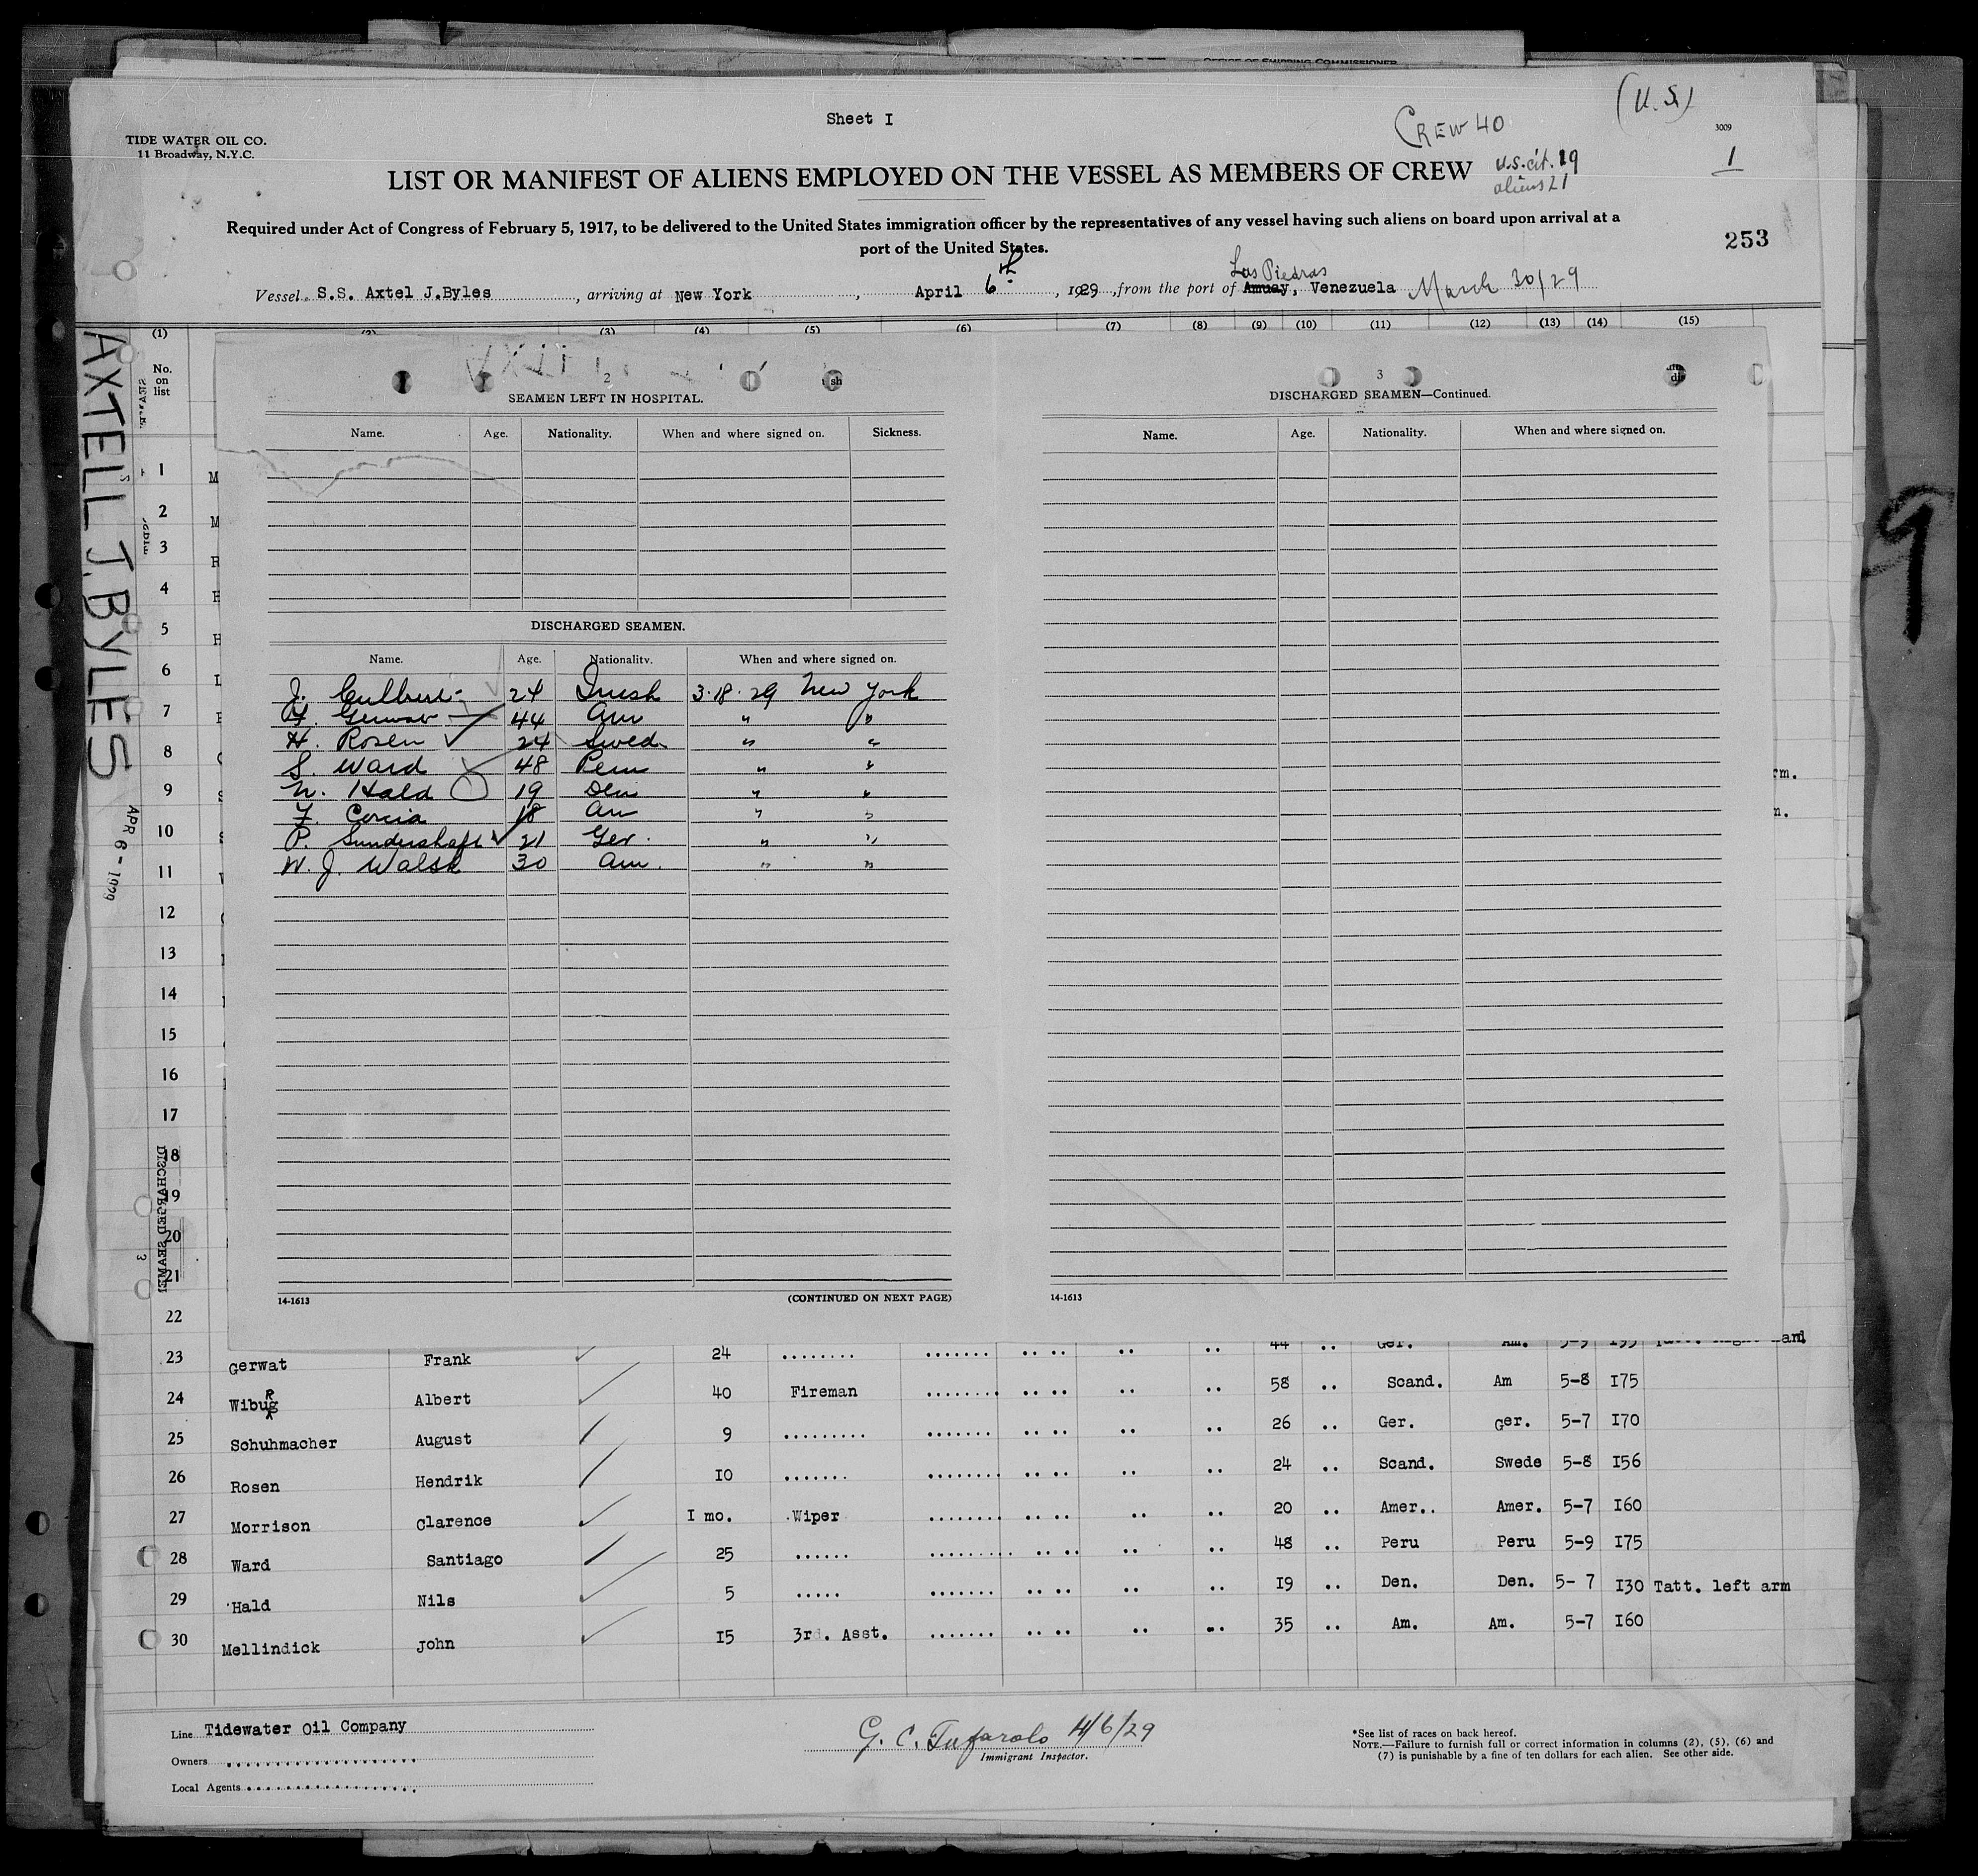 OFFICE OF SHIPPING COMMISSIONER
(U.S.)
Sheet I
CREW 40
3009
TIDE WATER OIL CO.
11 Broadway, N.Y.C.
1
LIST OR MANIFEST OF ALIENS EMPLOYED ON THE VESSEL AS MEMBERS OF CREW
U.S. cit. 19
aliens 21
Required under Act of Congress of February 5, 1917, to be delivered to the United States immigration officer by the representatives of any vessel having such aliens on board upon arrival at a
port of the United States.
253
Las Piedras
Vessel S.S. Axtel J.Byles, arriving at New York, April 6th, 1929, from the port of Amuay, Venezuela March 30/29
(1) (2) (3) (4) (5) (6) (7) (8) (9) (10) (11) (12) (13) (14) (15)
AXTELL J. BYLES
APR 6 - 1929
9
No. on list
2
SEAMEN LEFT IN HOSPITAL.
Name. Age. Nationality. When and where signed on. Sickness.
DISCHARGED SEAMEN.
Name. Age. Nationality. When and where signed on.
J. 24 Irish 3-18-29 New York
44 Am " "
H. Rosen 24 Swed. " "
S. Ward 48 Peru " "
N. Hald 19 Den " "
F. 18 Am " "
P. 21 Ger. " "
W. J. Walsh 30 Am. " "
14-1613 (CONTINUED ON NEXT PAGE)
3
DISCHARGED SEAMEN—Continued.
Name. Age. Nationality. When and where signed on.
14-1613
1
2
3
4
5
6
7
8
9
10
11
12
13
14
15
16
17
18
19
20
21
22
DISCHARGED SEAME
3
23 Gerwat Frank 24 ........ ....... .. .. .. .. 44 .. Ger. Am. 5-9 195
24 Wibug R Albert 40 Fireman ........ .. .. .. .. 58 .. Scand. Am 5-8 175
25 Schuhmacher August 9 ......... ....... .. .. .. .. 26 .. Ger. Ger. 5-7 170
26 Rosen Hendrik 10 ....... ........ .. .. .. .. 24 .. Scand. Swede 5-8 156
27 Morrison Clarence I mo. Wiper ........ .. .. .. .. 20 .. Amer.. Amer. 5-7 160
28 Ward Santiago 25 ...... ......... .. .. .. .. 48 .. Peru Peru 5-9 175
29 Hald Nils 5 ..... ....... .. .. .. .. 19 .. Den. Den. 5- 7 130 Tatt. left arm
30 Mellindick John 15 3rd. Asst. ....... .. .. .. .. 35 .. Am. Am. 5-7 160
Line Tidewater Oil Company
Owners
Local Agents
G. C. Tufarolo 4/6/29
Immigrant Inspector.
*See list of races on back hereof.
NOTE.—Failure to furnish full or correct information in columns (2), (5), (6) and
(7) is punishable by a fine of ten dollars for each alien. See other side.